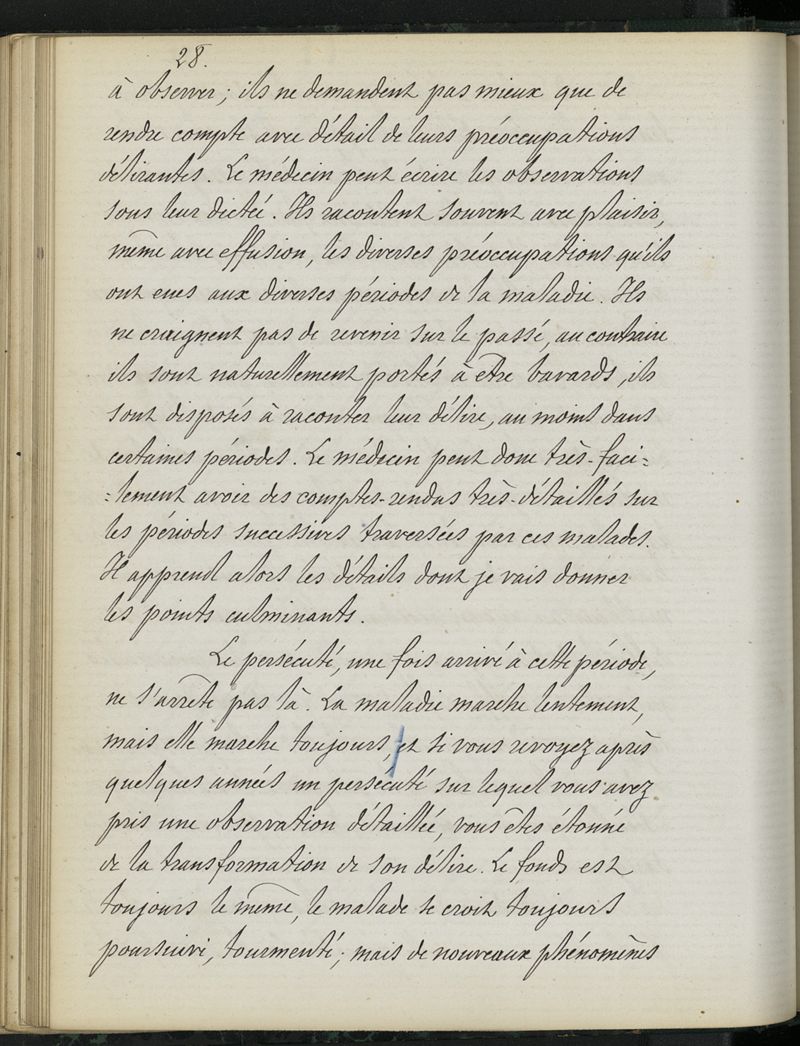 28.
à observer ; ils ne demandent pas mieux que de
rendre compte avec détail de leurs préoccupations
délirantes. Le médecin peut écrire les observations
sous leur dictée. Ils racontent souvent avec plaisir,
même avec effusion, les diverses préoccupations qu'ils
ont eues aux diverses périodes de la maladie. Ils
ne craignent pas de revenir sur le passé, au contraire
ils sont naturellement portés à être bavards, ils
sont disposés à raconter leur délire, au moins dans
certaines périodes. Le médecin peut donc très-faci=
=lement avoir des comptes-rendus très-détaillés sur
les périodes successives traversées par ces malades.
Il apprend alors les détails dont je vais donner
les points culminants.
Le persécuté, une fois arrivé à cette période,
ne s'arrête pas là. La maladie marche lentement,
mais elle marche toujours, et si vous revoyez après
quelques années un persécuté sur lequel vous avez
pris une observation détaillée, vous êtes étonné
de la transformation de son délire. Le fonds est
toujours le même, le malade se croit toujours
poursuivi, tourmenté ; mais de nouveaux phénomènes